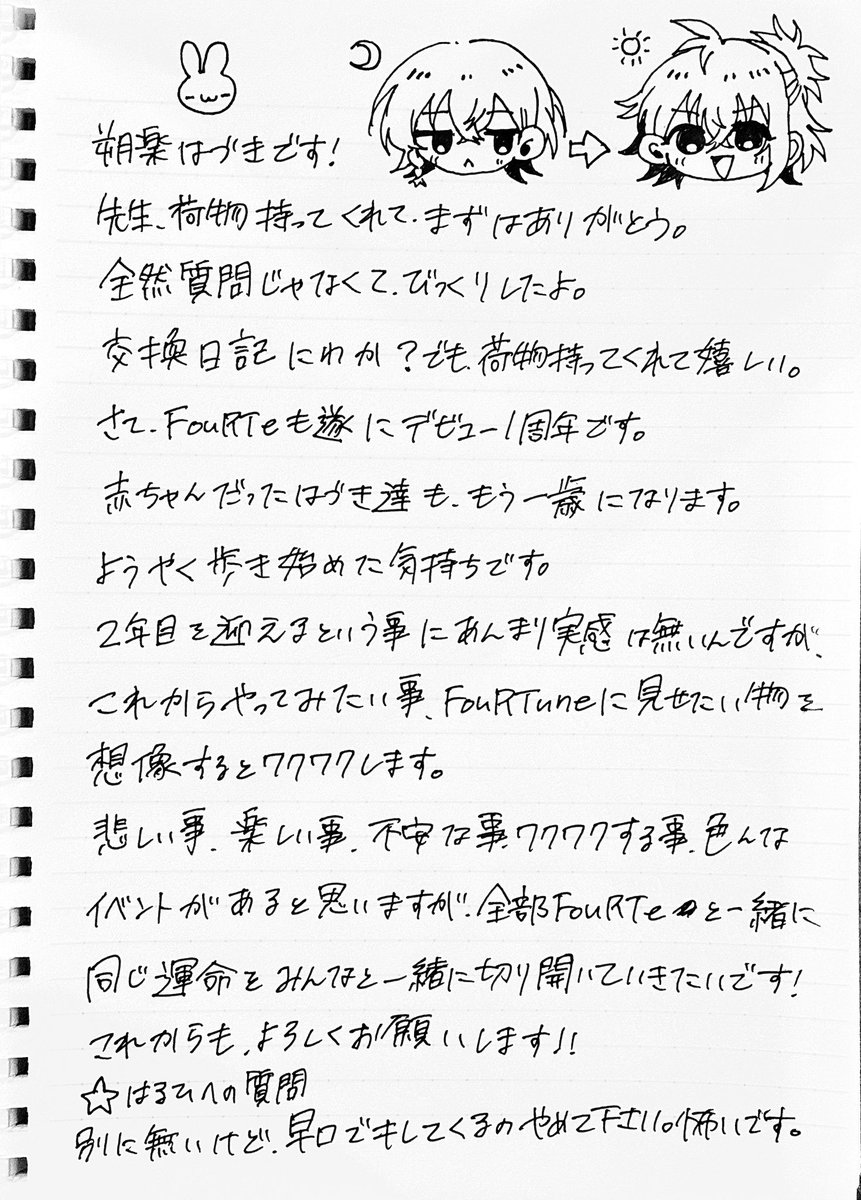 朔楽はづきです!
先生、荷物持ってくれて、まずはありがとう。
全然質問じゃなくて、びっくりしたよ。
交換日記にわか?でも、荷物持ってくれて嬉しい。
さて、FouRTeも遂にデビュー1周年です。
赤ちゃんだったはづき達も、もう一歳になります。
ようやく歩き始めた気持ちです。
2年目を迎えるという事にあんまり実感は無いんですが、
これからやってみたい事、FouRTuneに見せたい物を
想像するとワクワクします。
悲しい事、楽しい事、不安な事、ワクワクする事、色んな
イベントがあると思いますが、全部FouRTeと一緒に
同じ運命をみんなと一緒に切り開いていきたいです!
これからも、よろしくお願いします!!
☆はるひへの質問
別に無いけど、早口でキしてくるのやめて下さい。怖いです。